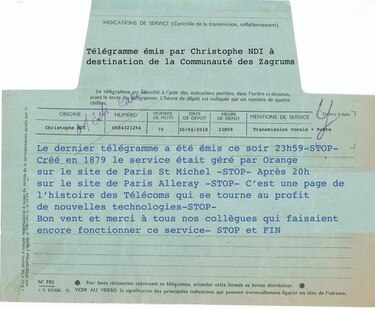 INDICATIONS DE SERVICE (Contrôle de la transmission, collationnement).
Télégramme émis par Christophe NDI à
destination de la Communauté des Zagrums
ORIGINE NUMÉRO NOMBRE DE MOTS DATE DE DÉPÔT HEURE DE DÉPÔT MENTIONS DE SERVICE
Christophe NDI 0484321254 70 30/04/2018 23H59 Transmission vocale + Poste
Le dernier télégramme a été émis ce soir 23h59-STOP-
Créé en 1879 le service était géré par Orange
sur le site de Paris St Michel -STOP- Après 20h
sur le site de Paris Alleray -STOP- C'est une page de
L'histoire des Télécoms qui se tourne au profit
de nouvelles technologies-STOP-
Bon vent et merci à tous nos collègues qui faisaient
encore fonctionner ce service- STOP et FIN
N° 701 Pour toute réclamation concernant ce télégramme, présenter cette formule au bureau distributeur.
VOIR AU VERSO la signification des principales indications qui peuvent éventuellement figurer en tête de l'adresse.